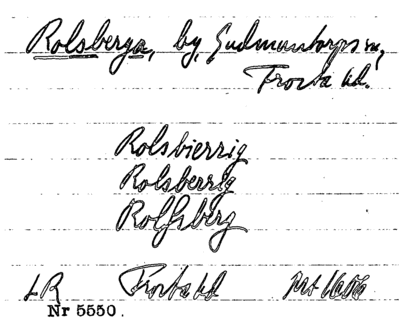 Rolsberga, by, Gudmuntorps sn,
Frosta hd.
Rolsbierrig
Rolsberrig
Rolfsberg
LR Frosta hd
Nr 5550.